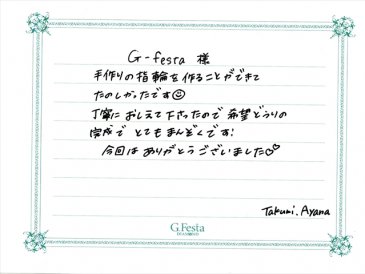 G-festa 様
手作りの指輪を作ることができて
たのしかったです
丁寧におしえて下さったので希望どうりの
完成で とてもまんぞくです!
今回は ありがとうございました♡♡
Takumi. Ayana
G.Festa